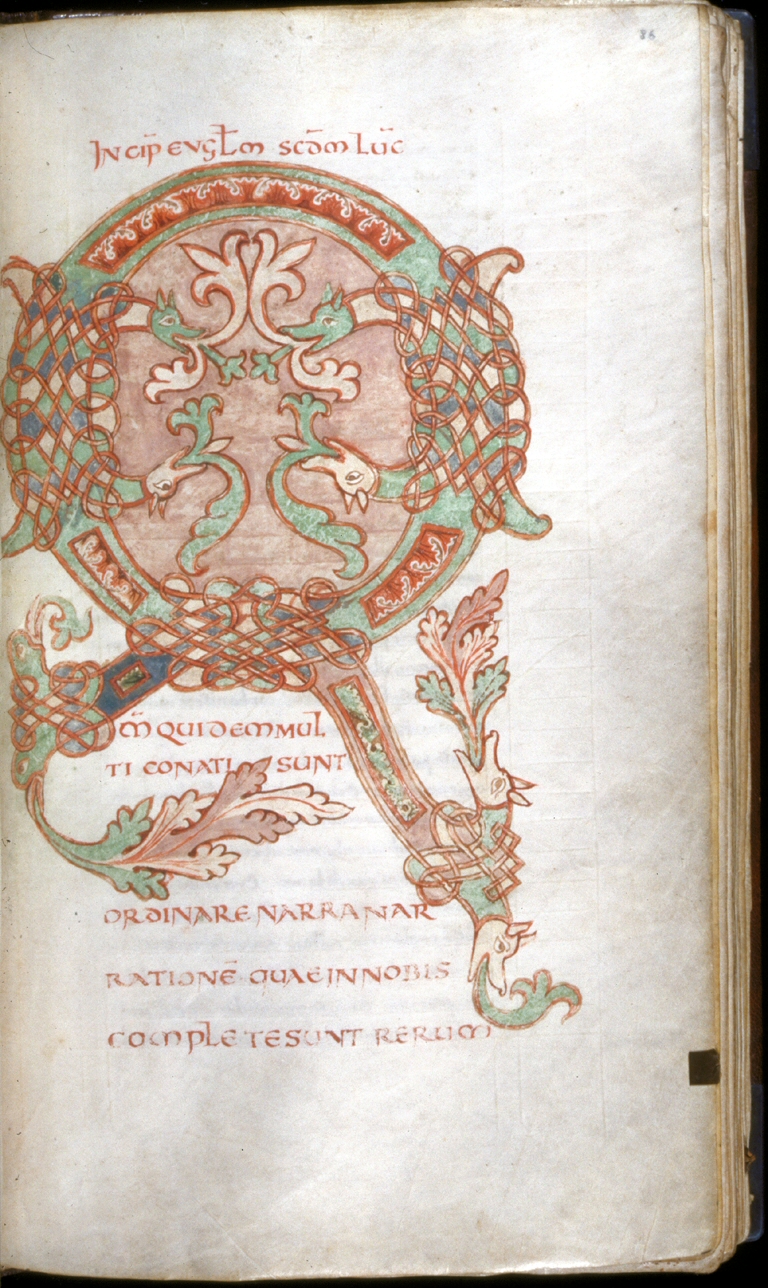 86
Incip̄ evgḹm scd̄m lūc
Q
m̄ quidem mul
ti conati sunt
ordinare narranar
rationē quae in nobis
complete sunt rerum